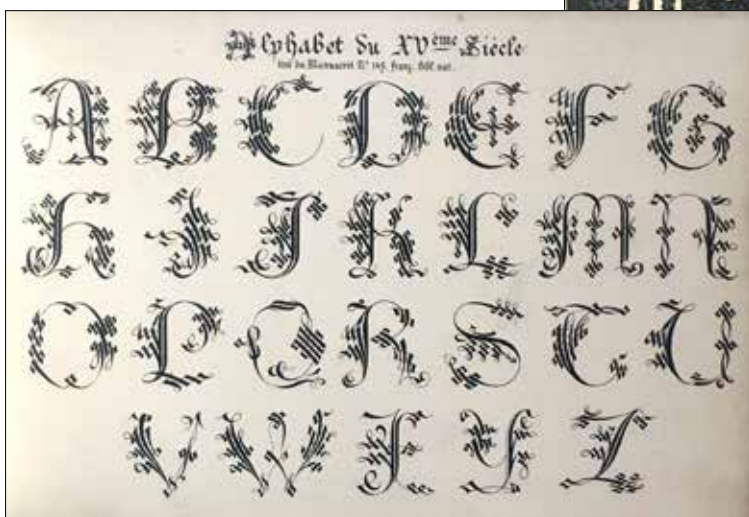 Alphabet du XVème Siècle
tiré du Manuscrit N° 145. franç. Bibl. nat.
A B C D E F G
H I J K L M N
O P Q R S T U
V W X Y Z